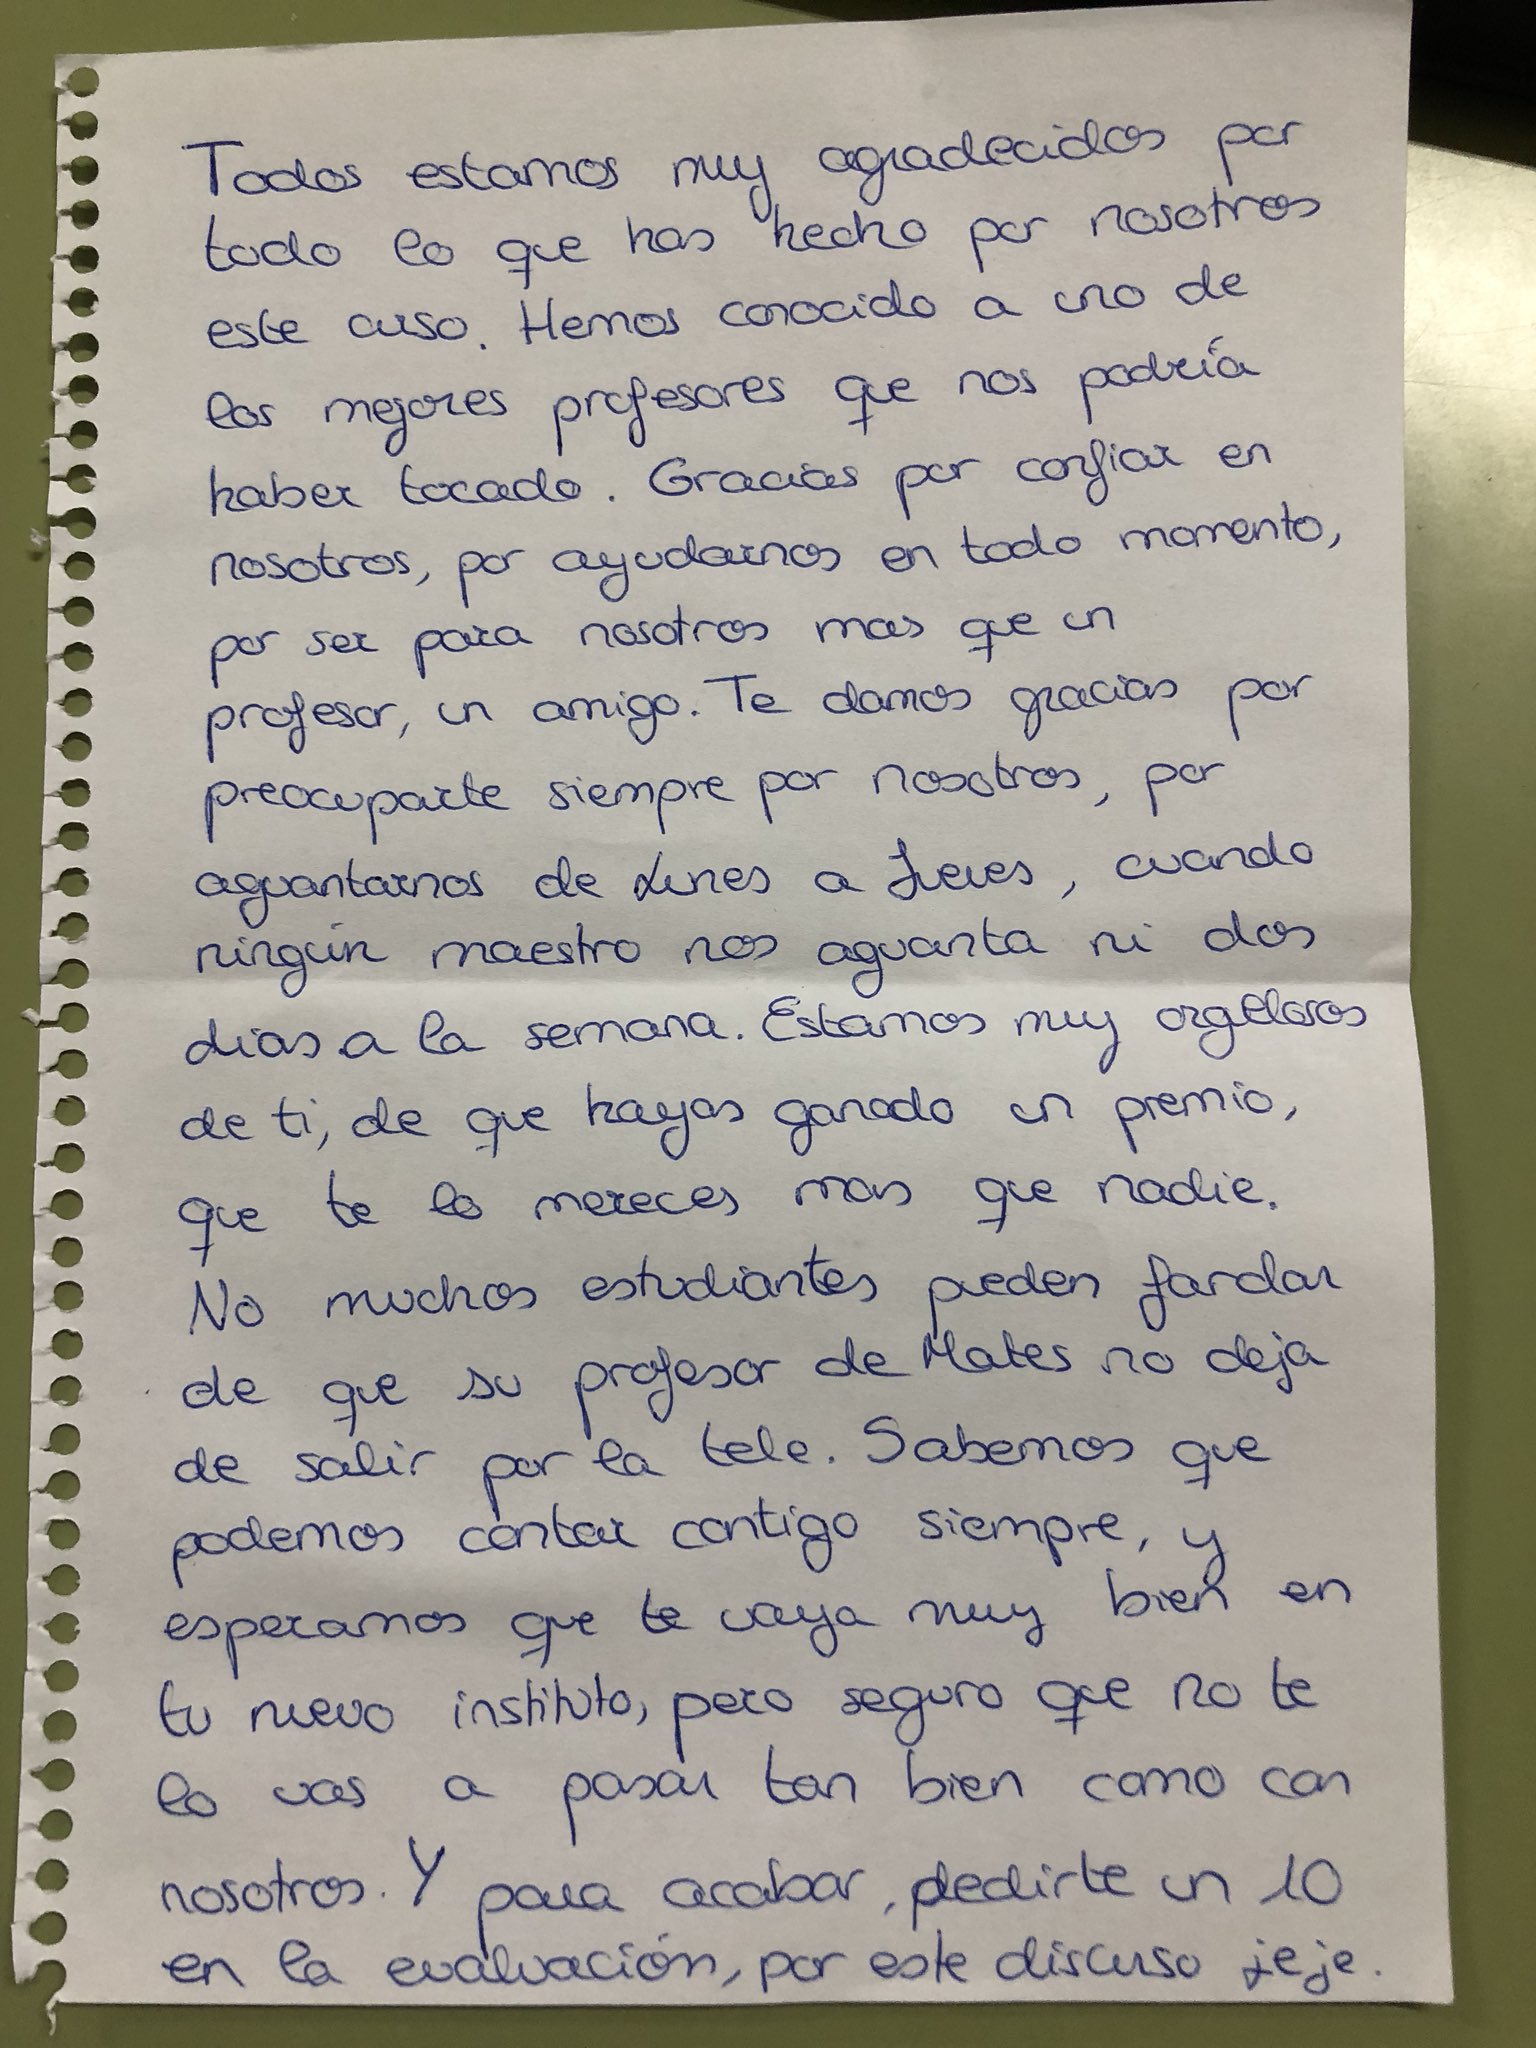 Todos estamos muy agradecidos por
todo lo que has hecho por nosotros
este curso. Hemos conocido a uno de
los mejores profesores que nos podría
haber tocado. Gracias por confiar en
nosotros, por ayudarnos en todo momento,
por ser para nosotros mas que un
profesor, un amigo. Te damos gracias por
preocuparte siempre por nosotros, por
aguantarnos de Lunes a Jueves, cuando
ningún maestro nos aguanta ni dos
dias a la semana. Estamos muy orgellosos
de ti, de que hayas ganado un premio,
que te lo mereces mas que nadie.
No muchos estudiantes pueden fardar
de que su profesor de Mates no deja
de salir por la tele. Sabemos que
podemos contar contigo siempre, y
esperamos que te vaya muy bien en
tu nuevo instituto, pero seguro que no te
lo vas a pasar tan bien como con
nosotros. Y para acabar, pedirte un 10
en la evaluación, por este discurso jeje.